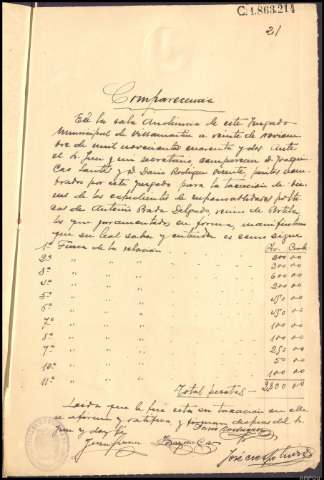 C.1.863.214
21
Comparecencia
En la sala Audiencia de este Juzgado
Municipal de Villamartin a veinte de noviem
bre de mil novecientos cuarenta y dos. Ante
el Sr. Juez y mi secretario, comparecen D. Joaquin
Cao y D. Dario Rodriguez peritos nom
brados por este Juzgado para la tasacion de bie
nes de los expedientes de responsabilidades politi
cas de Antonio Bada Delgado, vecino de
los que juramentados en forma, manifiestan
que en leal saber y entender es como sigue
1ª Finca de la relacion 200 00
2ª " " " 200 00
3ª " " " 600 00
4ª " " " 200 00
5ª " " "
6ª " " "
7ª " " " 100 00
8ª " " " 100 00
9ª " " " 250 00
10ª " " " 50 00
11ª " " " 100 00
Total pesetas
Leida que le fue esta su tasacion en ella
se afirman y ratifican y firman despues del Sr.
Juez y doy fe